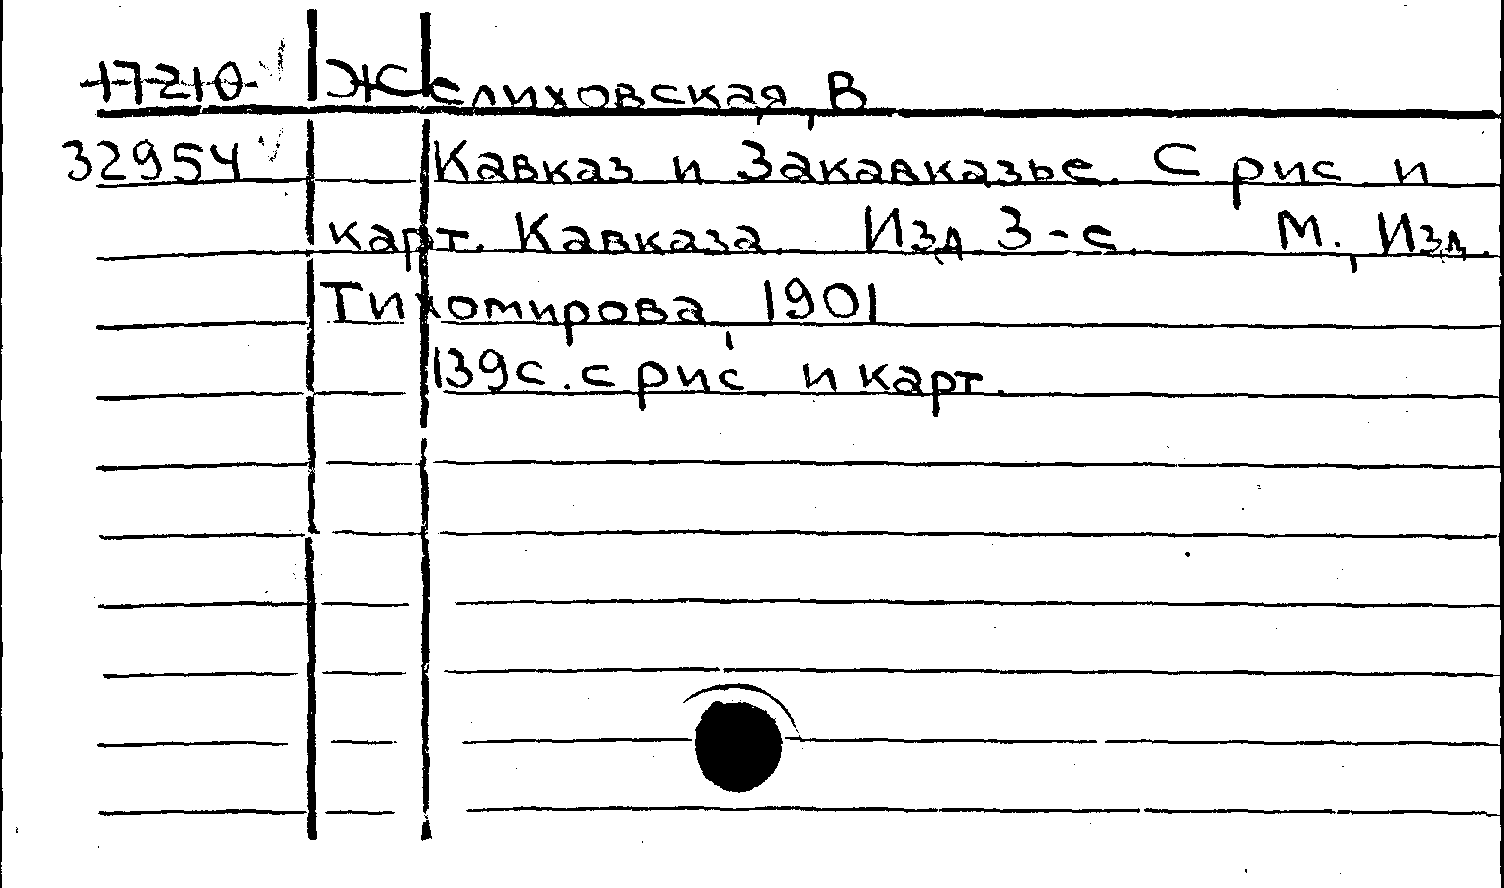 17210 Желиховская, В
32954 Кавказ и Закавказье. С рис и
карт. Кавказа. Изд 3-е. М., Изд.
Тихомирова, 1901
139с. с рис и карт.